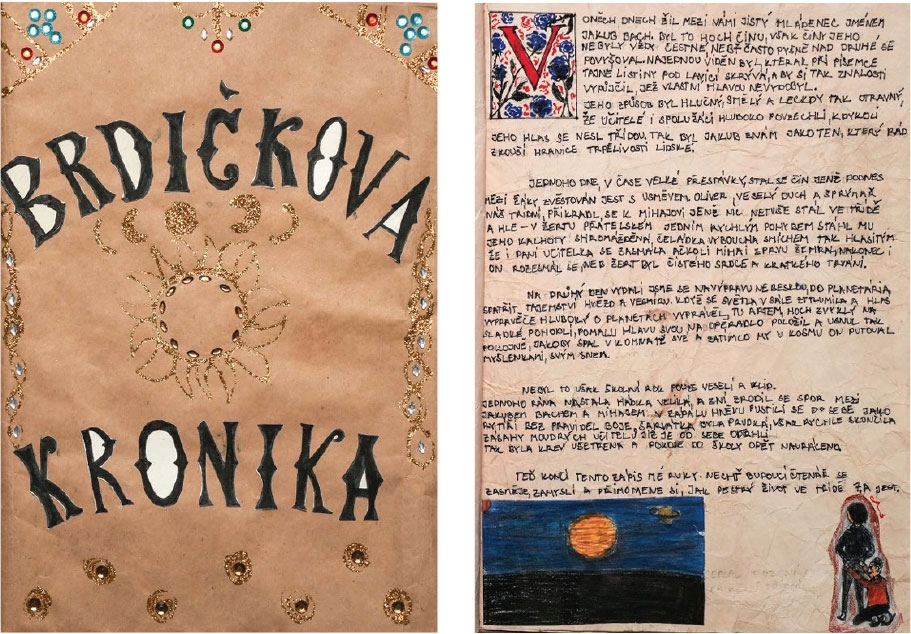 BRDIČKOVA
KRONIKA
V ONĚCH DNECH ŽIL MEZI VÁMI JISTÝ MLÁDENEC JMÉNEM
JAKUB BACH. BYL TO HOCH ČINU, VŠAK ČINY JEHO
NEBYLY VŽDY ČESTNÉ, NEBŤ ČASTO PYŠNĚ NAD DRUHÉ SE
POVYŠOVAL. NAJEDNOU VIDĚN BYL, KTERAK PŘI PÍSEMCE
TAJNÉ LISTINY POD LAVICÍ SKRÝVÁ, ABY SI TAK ZNALOSTI
VYPŮJČIL, JEŽ VLASTNÍ HLAVOU NEVYDOBYL.
JEHO ZPŮSOB BYL HLUČNÝ, SMĚLÝ A LECKDY TAK OTRAVNÝ,
ŽE UČITELÉ I SPOLUŽÁCI HLUBOKO POVZECHLI, KDYKOLI
JEHO HLAS SE NESL TŘÍDOU, TAK BYL JAKUB ZNÁM JAKO TEN, KTERÝ RÁD
ZKOUŠÍ HRANICE TRPĚLIVOSTI LIDSKÉ.
JEDNOHO DNE, V ČASE VELKÉ PŘESTÁVKY, STAL SE ČIN, JENŽ PODNES
MEZI ŽÁKY ZVĚSTOVÁN JEST S ÚSMĚVEM. OLIVER, VESELÝ DUCH A ŠPRÝMAŘ
NÁŠ TAJNÝ, PŘIKRADL SE K MIHAJOVI, JENŽ NIC NETUŠE STÁL VE TŘÍDĚ
A HLE - V ŽERTU PŘÁTELSKÉM JEDNÍM RYCHLÝM POHYBEM STÁHL MU
JEHO KALHOTY! SHROMÁŽDĚNÁ ČELÁDKA VYBOUCHLA SMÍCHEM TAK HLASITÝM
ŽE I PANÍ UČITELKA SE ZASMÁLA. AČKOLI MIHAI ZPRVU ŽEHRAL, NAKONEC I
ON ROZESMÁL SE, NEB ŽERT BYL ČISTÉHO SRDCE A KRÁTKÉHO TRVÁNÍ.
NA DRUHÝ DEN VYDALI JSME SE NA VÝPRAVU NEBESKOU, DO PLANETÁRIA
SPATŘIT TAJEMSTVÍ HVĚZD A VESMÍRU. KDYŽ SE SVĚTLA V SÁLE ZTLUMILA A HLAS
VYPRAVĚČE HLUBOKÝ O PLANETÁCH VYPRÁVĚL, TU ARTEM, HOCH ZVYKLÝ NA
SLADKÉ POHODLÍ, POMALU HLAVU SVOU NA OPĚRADLO POLOŽIL A USNUL TAK
POKOJNĚ, JAKOBY SPAL V KOMNATĚ SVÉ A ZATÍMCO MY V KOSMU ON PUTOVAL
MYŠLENKAMI, SVÝM SNEM.
NEBYL TO VŠAK ŠKOLNÍ ROK POUZE VESELÍ A KLID.
JEDNOHO RÁNA NASTALA HÁDKA VELIKÁ, A Z NÍ ZRODIL SE SPOR MEZI
JAKUBEM BACHEM A MIHAJEM. V ZÁPALU HNĚVU PUSTILI SE DO SEBE JAKO
RYTÍŘI BEZ PRAVIDEL BOJE, ŠARVÁTKA BYLA PRUDKÁ, VŠAK RYCHLE SKONČILA
ZÁSAHY MOUDRÝCH UČITELŮ JIŽ JE OD SEBE ODTRHLI.
TAK BYLA KREV UŠETŘENA A POKOJ DO ŠKOLY OPĚT NAVRÁCENO.
TEĎ KONČÍ TENTO ZÁPIS MÉ RUKY. NECHŤ BUDOUCÍ ČTENÁŘ SE
ZASMĚJE, ZAMYSLÍ A PŘIPOMENE SI, JAK PESTRÝ ŽIVOT VE TŘÍDĚ 7.A JEST.